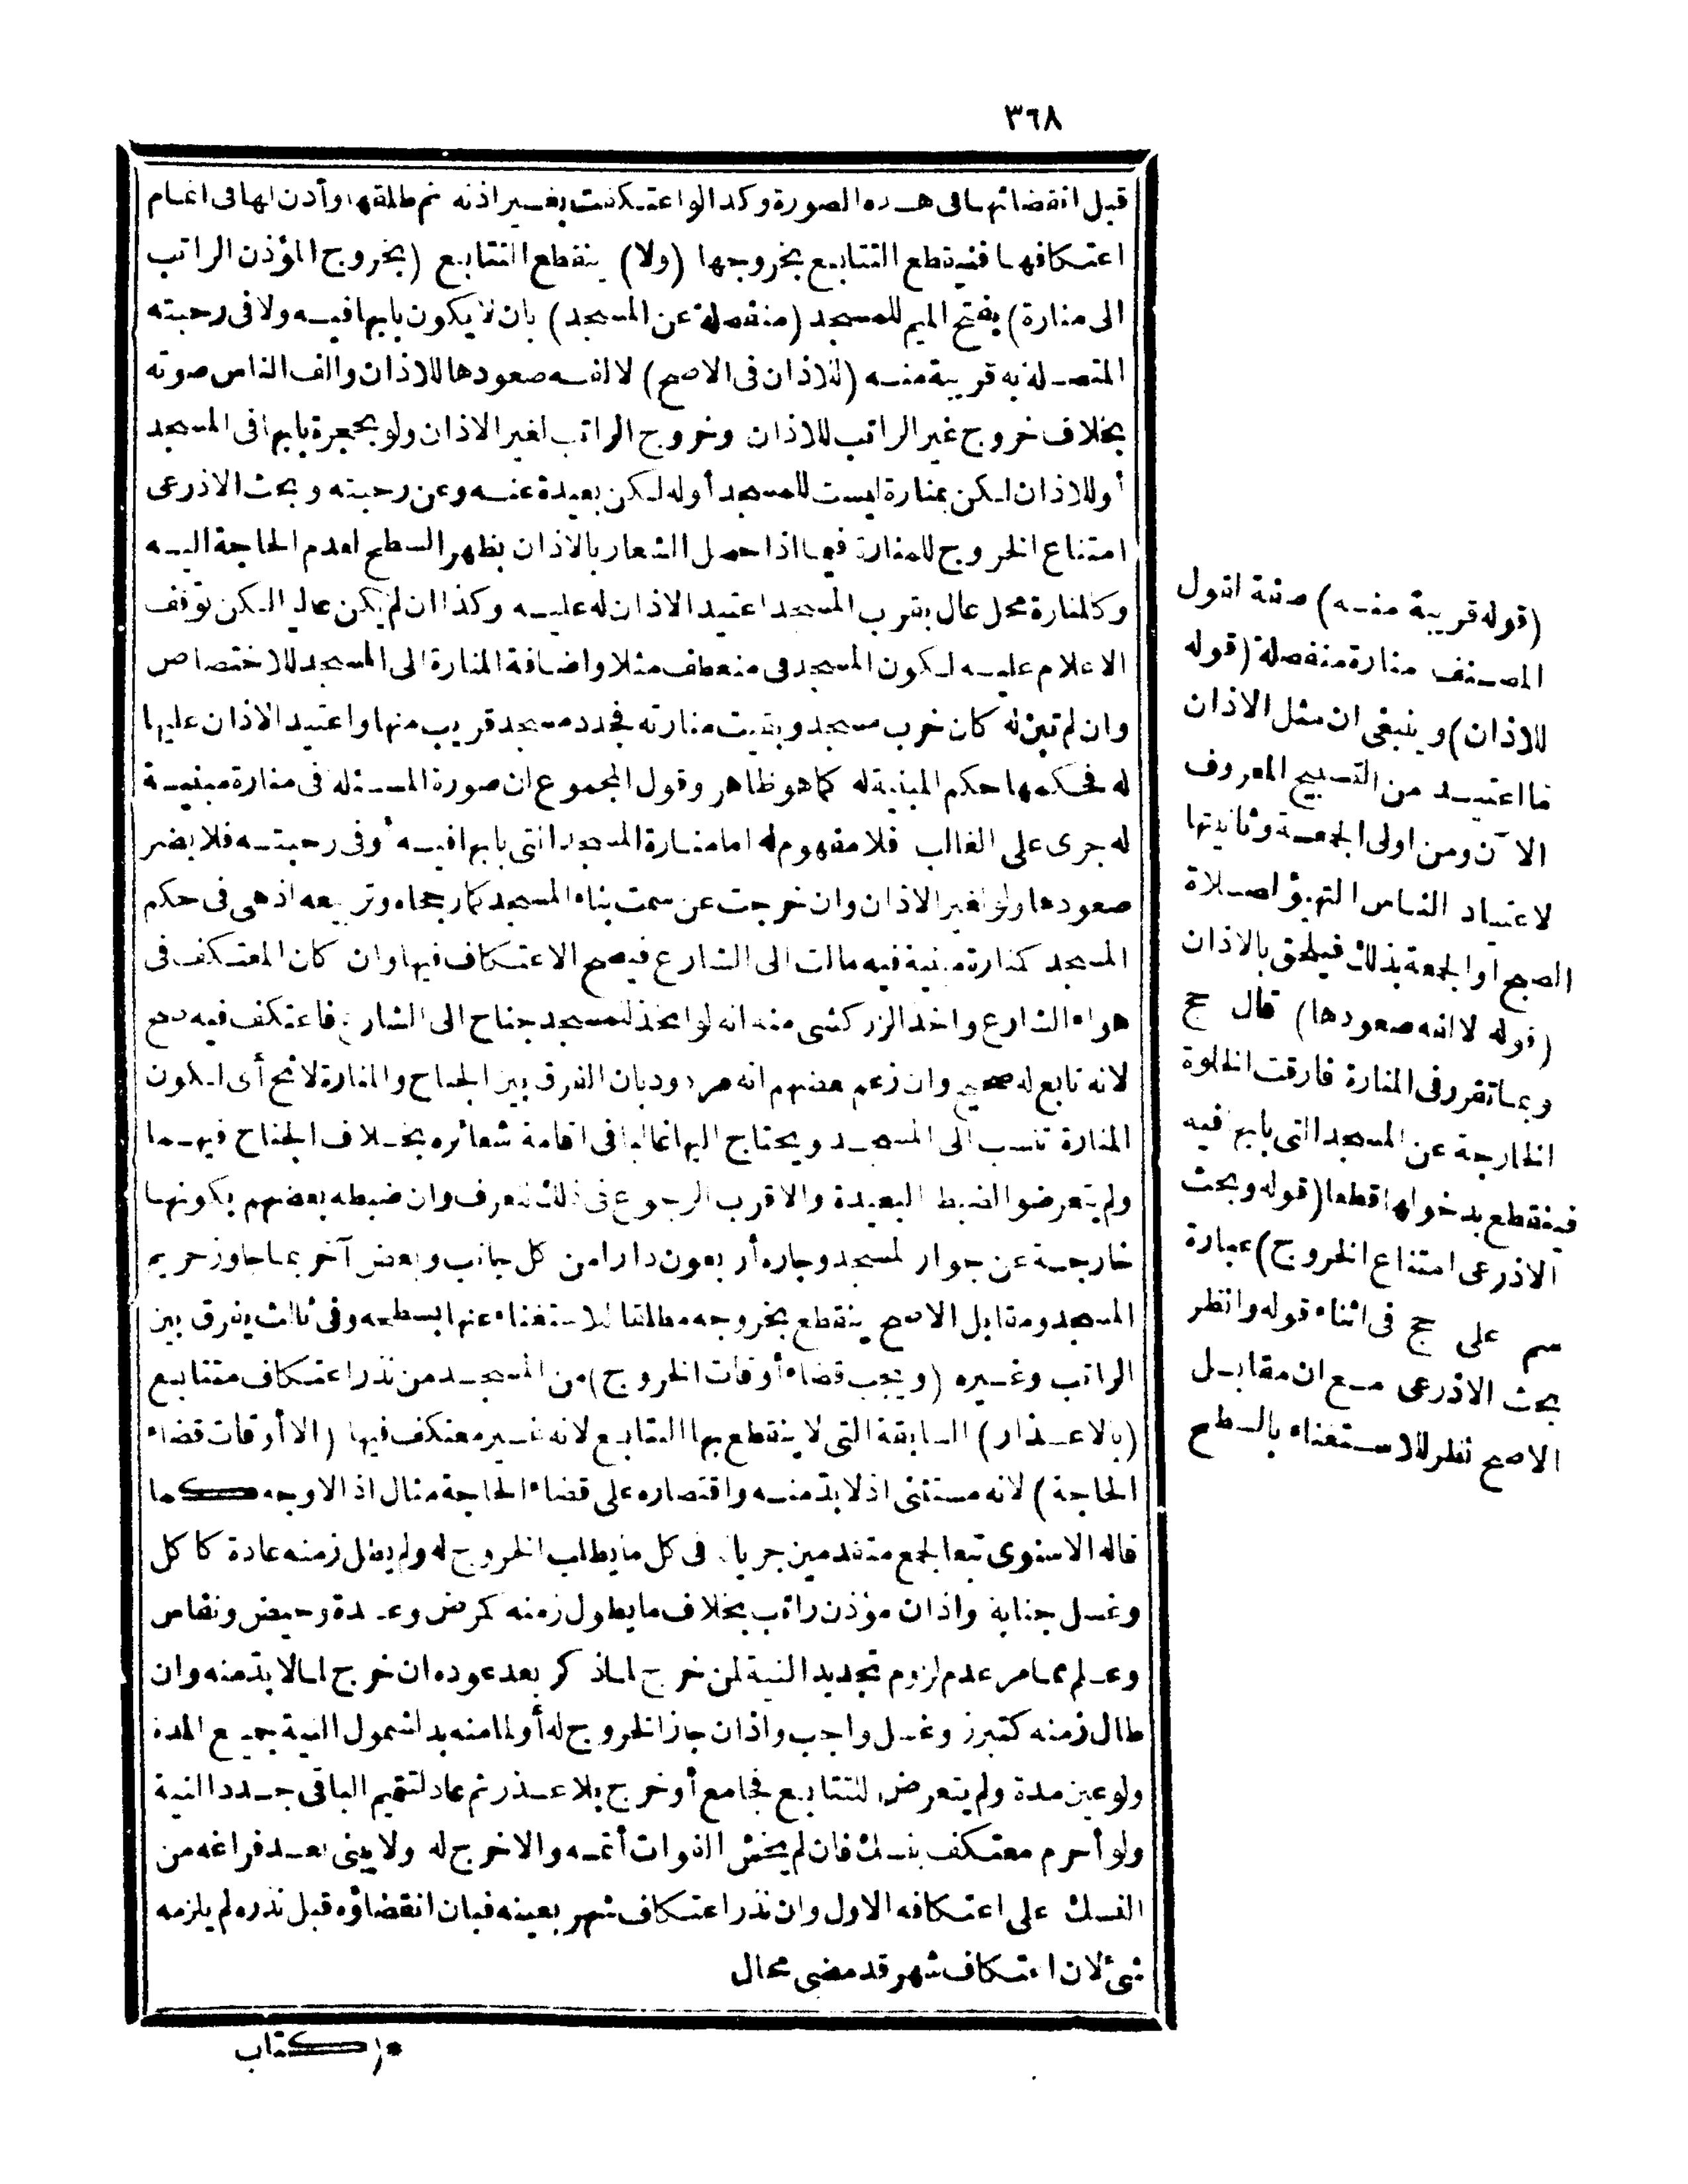 ٣٦٨
قبل انقضائها فى هذه الصورة وكذا لو اعتكفت بغير اذنه ثم طلقها وأذن لها فى اتمام
اعتكافها فينقطع التتابع بخروجها (ولا) ينقطع التتابع (بخروج المؤذن الراتب
الى منارة) بفتح الميم للمسجد (منفصلة عن المسجد) بان لا يكون بابها فيه ولا فى رحبته
المتصلة به قريبة منه (للاذان فى الاصح) لالفه صعودها للاذان والف الناس صوته
بخلاف خروج غير الراتب للاذان وخروج الراتب لغير الاذان ولو بحجرة بابها فى المسجد
أو للاذان لكن بمنارة ليست للمسجد أو له لكن بعيدة عنه وعن رحبته وبحث الاذرعى
امتناع الخروج للمنارة فيما اذا حصل الشعار بالاذان بظهر السطح لعدم الحاجة اليه
وكالمنارة محل عال بقرب المسجد اعتيد الاذان له عليه وكذا ان لم يكن عاليا لكن توقف
الاعلام عليه لكون المسجد فى منعطف مثلا واضافة المنارة الى المسجد للاختصاص
وان لم تبن له كان خرب مسجد وبقيت منارته فجدد مسجد قريب منها واعتيد الاذان عليها
له فحكمها حكم المبنية له كما هو ظاهر وقول المجموع ان صورة المسئلة فى منارة مبنية
له جرى على الغالب فلا مفهوم له اما منارة المسجد التى بابها فيه أو فى رحبته فلا يضر
صعودها ولو لغير الاذان وان خرجت عن سمت بناء المسجد كما رجحاه وتربيعه اذ هى فى حكم
المسجد كمنارة مبنية فيه مالت الى الشارع فيصح الاعتكاف فيها وان كان المعتكف فى
هواء الشارع وأخذ الزركشى منه انه لو اتخذ للمسجد جناح الى الشارع فاعتكف فيه صح
لانه تابع له صحيح وان زعم بعضهم انه مردود بان الفرق بين الجناح والمنارة لائح أى لكون
المنارة تنسب الى المسجد ويحتاج اليها غالبا فى اقامة شعائره بخلاف الجناح فيهما
ولم يتعرضوا لضبط البعيدة والاقرب الرجوع فى ذلك للعرف وان ضبطه بعضهم بكونها
خارجة عن جوار المسجد وجاره أربعون دارا من كل جانب وبعض آخر بما جاوز حريم
المسجد ومقابل الاصح ينقطع بخروجه مطلقا للاستغناء عنها بسطحه وفى ثالث يفرق بين
الراتب وغيره (ويجب قضاء أوقات الخروج) من المسجد من نذر اعتكاف متتابع
(بالاعذار) السابقة التى لا ينقطع بها التتابع لانه غير معتكف فيها (الا أوقات قضاء
الحاجة) لانه مستثنى اذ لا بد منه واقتصاره على قضاء الحاجة مثال اذ الاوجه كما
قاله الاسنوى تبعا لجمع متقدمين جريانه فى كل ما يطلب الخروج له ولم يطل زمنه عادة كاكل
وغسل جنابة واذان مؤذن راتب بخلاف ما يطول زمنه كمرض وعدة وحيض ونفاس
وعلم مما مر عدم لزوم تجديد النية لمن خرج لما ذكر بعد عوده ان خرج لما لا بد منه وان
طال زمنه كتبرز وغسل واجب واذان جاز الخروج له أو لما منه بد لشمول النية جميع المدة
ولو عين مدة ولم يتعرض للتتابع فجامع أو خرج بلا عذر ثم عاد لتتميم الباقى جدد النية
ولو أحرم معتكف بنسك فان لم يخش الفوات أتمه والا خرج له ولا يبنى بعد فراغه من
النسك على اعتكافه الاول وان نذر اعتكاف شهر بعينه فبان انقضاؤه قبل نذره لم يلزمه
شئ لان اعتكاف شهر قد مضى محال
(قوله قريبة منه) صفة لقول
المصنف منارة منفصلة (قوله
للاذان) وينبغى ان مثل الاذان
ما اعتيد من التسبيح المعروف
الآن ومن اولى الجمعة وثانيتها
لاعتياد الناس التهيؤ لصلاة
الصبح أو الجمعة بذلك فيلحق بالاذان
(قوله لالفه صعودها) قال حج
وبما تقرر فى المنارة فارقت الخلوة
الخارجة عن المسجد التى بابها فيه
فينقطع بدخولها قطعا (قوله وبحث
الاذرعى امتناع الخروج) عبارة
سم على حج فى اثناء قوله وانظر
بحث الاذرعى مع ان مقابل
الاصح نظر للاستغناء بالسطح
* (كتاب